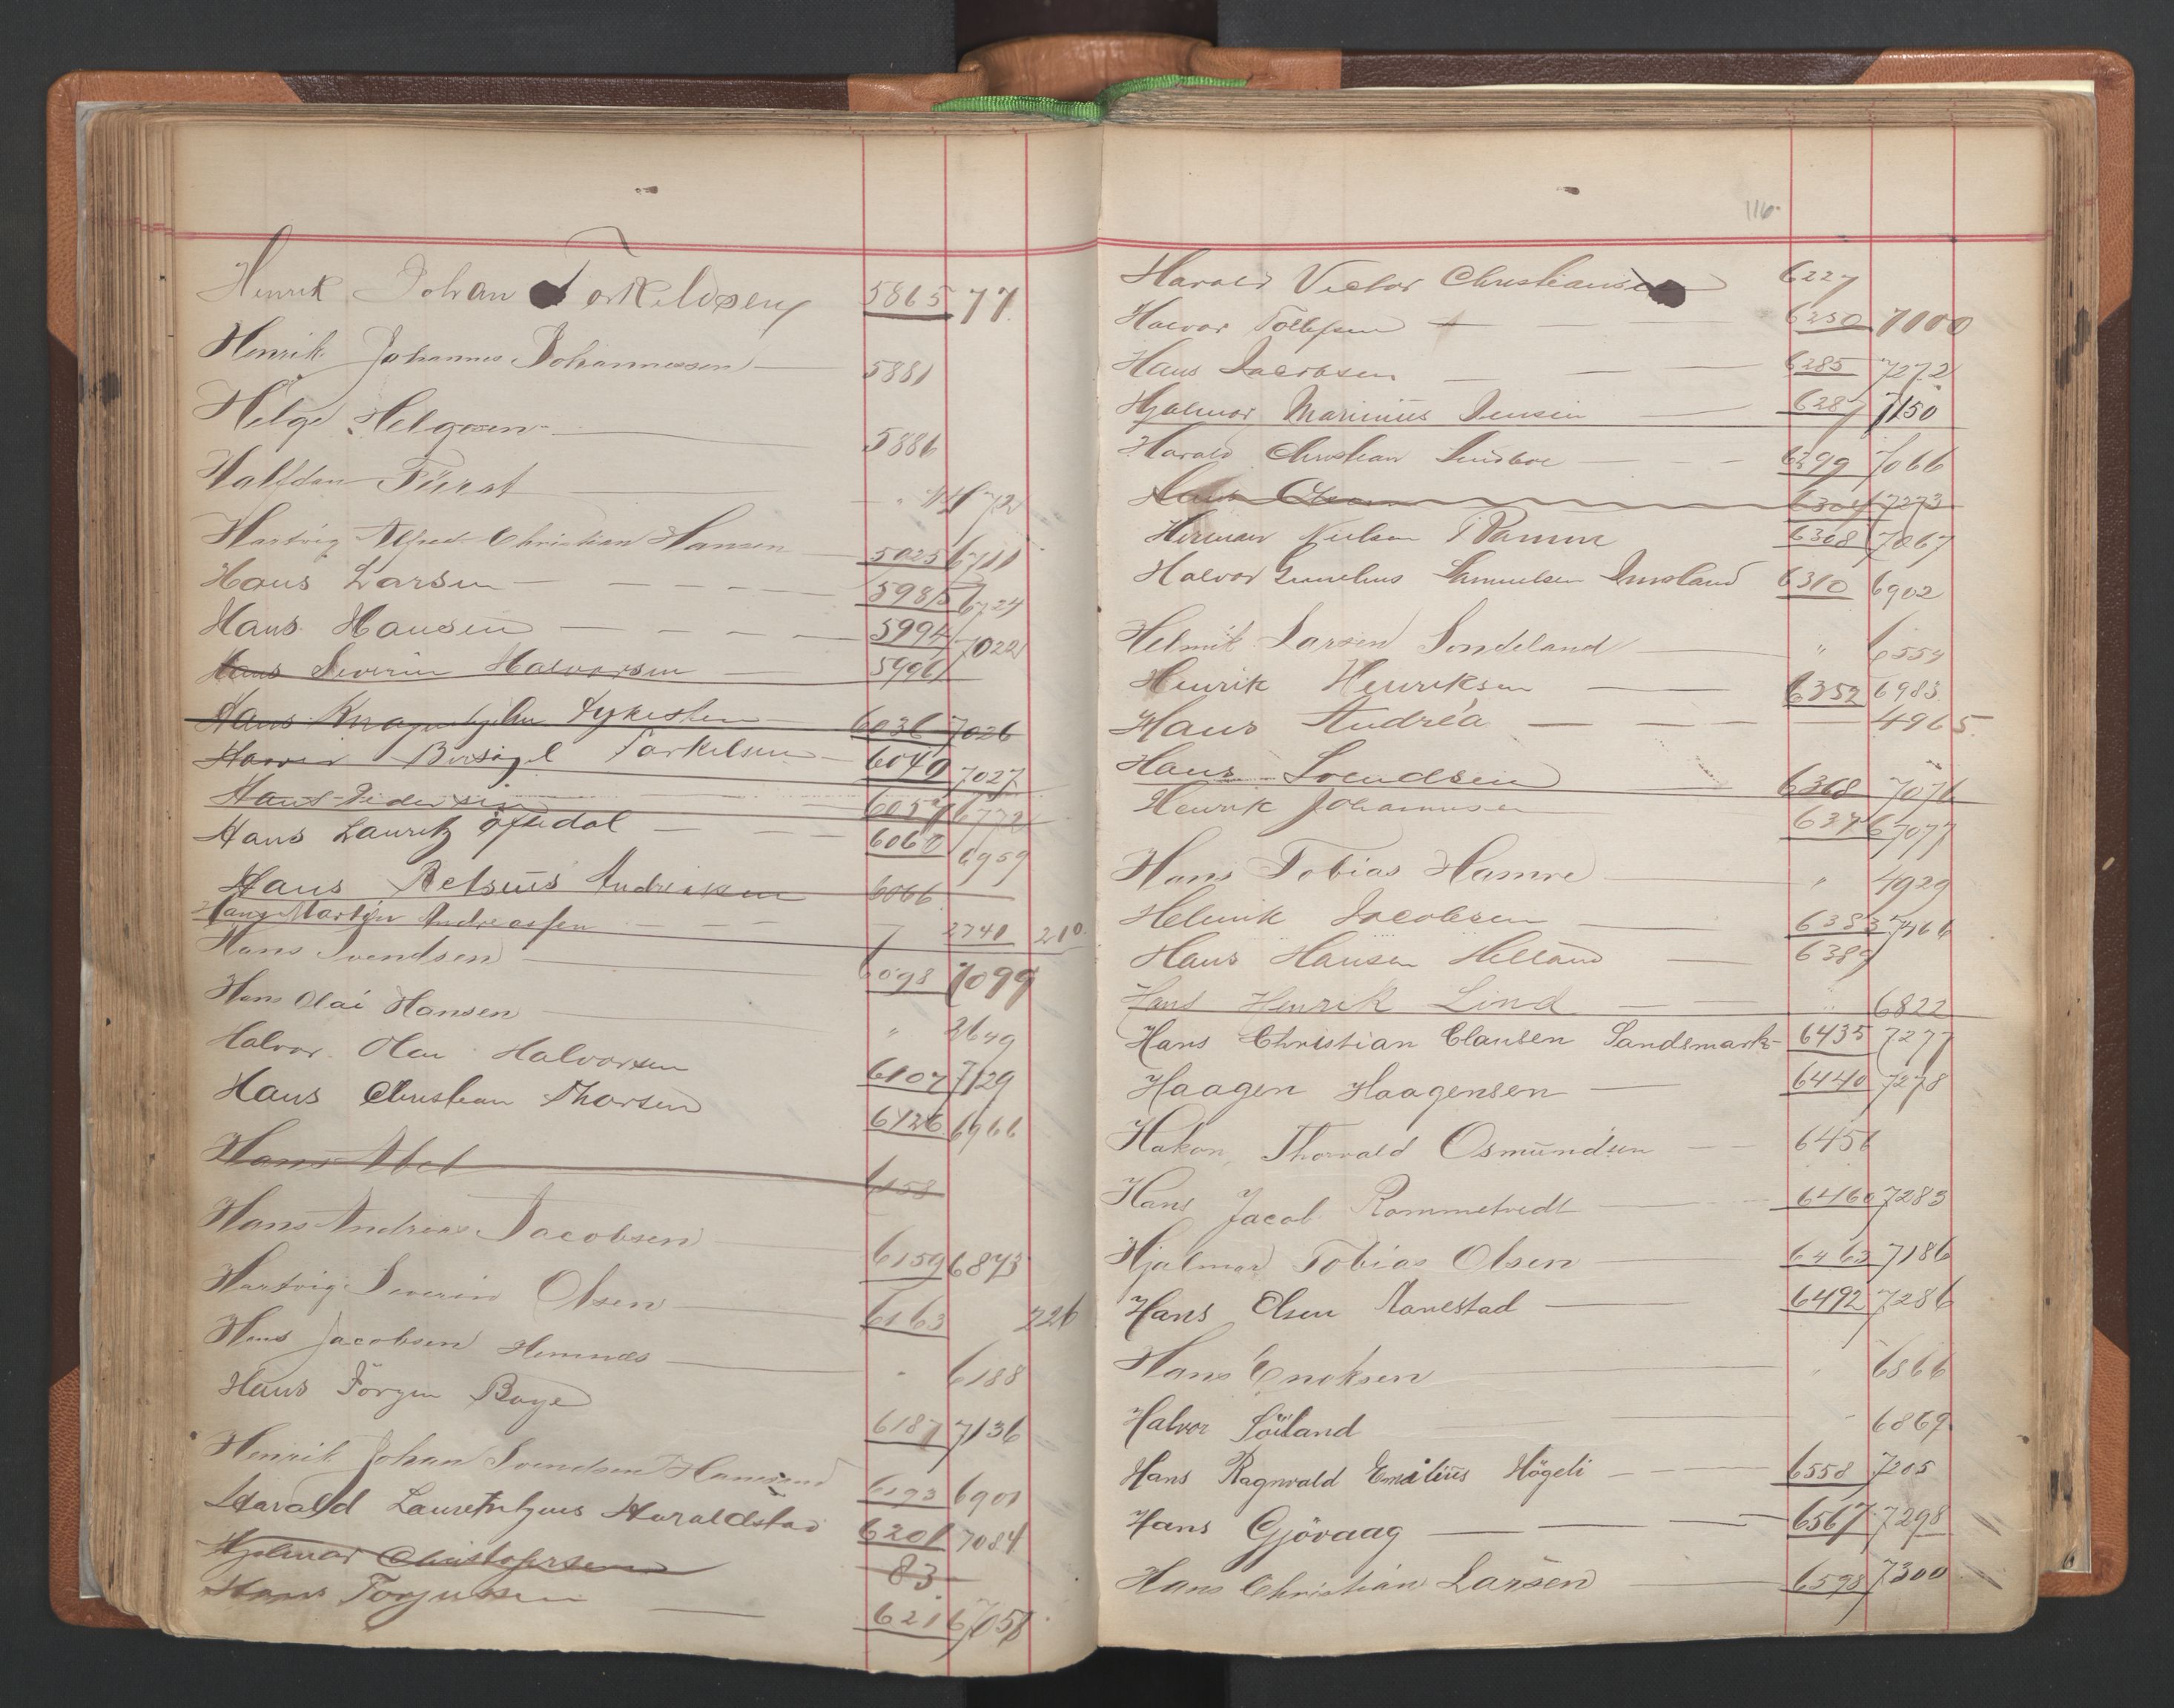 Henrik Johan Torkildsen 5865 77
Henrik Johannes Johannessen 5881
Helge Helgesen 5886
Halfdan Fürst " 4472
Hartvig Alfred Christian Hansen 5025 6711
Hans Larsen 5985 6724
Hans Hansen 5994 7022
Hans Severin Halvorsen 5996
Hans 6036 7026
Torkelsen 6040 7027
Hans Pedersen 6057 6772
Hans Lauritz Oftedal 6062 6959
Hans Andreasen 6066
Hans Martin Andreassen 2741 210
Hans Svendsen 6098 7099
Hans Olai Hansen " 2649
Halvor Olai Halvorsen 6107 7129
Hans Christian Thorsen 6126 6966
Hans Abel 6158
Hans Andreas Jacobsen 6159 6873
Hartvig Severin Olsen 6163 226
Hans Jacobsen Hemnæs " 6188
Hans Jörgen Boye 6187 7136
Henrik Johan Svendsen 6193 6901
Harald Haraldstad 6201 7084
Hjalmar Christofersen 83
Hans Torjussen 6216 7058
116
Harald Victor Christiansen 6227
Halvor Tollefsen 6250 7000
Hans Jacobsen 6285 7272
Hjalmar Marinius Jensen 6287 7150
Harald Christian Lindboe 6299 7066
Hans 6304 7273
Herman Nielsen Ramm 6308 7067
Halvor Samuelsen Imsland 6310 6902
Helmik Larsen Sondeland " 6554
Henrik Henriksen 6352 6983
Hans Andréa 4965
Hans Svendsen 6368 7076
Henrik Johannesen 6376 7077
Hans Tobias Hamre " 4929
Helmik Jacobsen 6383 7166
Hans Hansen Helland 6389
Hans Henrik Lind " 6822
Hans Christian Clausen Sandsmark 6435 7277
Haagen Haagensen 6440 7278
Hakon Thorvald Osmundsen 6456
Hans Jacob Rommetvedt 6460 7283
Hjalmar Tobias Olsen 6463 7186
Hans Olsen Aanestad 6492 7286
Hans Enoksen " 6866
Halvor Söiland " 6869
Hans Ragnvald Emilius Högeli 6558 7205
Hans Gjövaag 6567 7298
Hans Christian Larsen 6598 7300